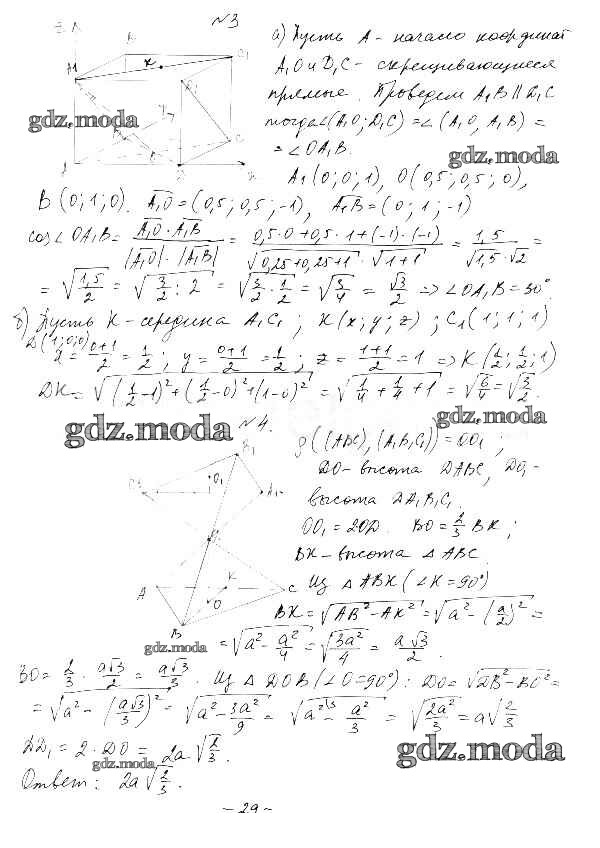 №3
а) Пусть А - начало координат
A₁O и D₁C - скрещивающиеся
прямые. Проведем A₁B ∥ D₁C
тогда ∠(A₁O; D₁C) = ∠(A₁O, A₁B) =
= ∠OA₁B.
A₁(0;0;1), O(0,5;0,5;0),
B(0;1;0). A₁O = (0,5; 0,5; -1), A₁B = (0; 1; -1)
cos∠OA₁B = A₁O · A₁B / |A₁O| · |A₁B| = 0,5·0+0,5·1+(-1)·(-1) / √0,25+0,25+1 · √1+1 = 1,5 / √1,5 · √2 =
= √1,5/2 = √3/2 : 2 = √3/2 · 1/2 = √3/4 = √3/2 ⇒ ∠OA₁B = 30°
б) Пусть K - середина A₁C₁; K(x; y; z); C₁(1; 1; 1)
D(1;0;0)
x = 0+1/2 = 1/2; y = 0+1/2 = 1/2; z = 1+1/2 = 1 ⇒ K(1/2; 1/2; 1)
DK = √(1/2-1)² + (1/2-0)² + (1-0)² = √1/4 + 1/4 + 1 = √6/4 = √3/2.
№4.
ρ((ABC), (A₁B₁C₁)) = OO₁;
DO - высота DABC, DO₁ -
высота DA₁B₁C₁
OO₁ = 2OD. BO = 2/3 BK;
BK - высота △ABC
Из △ABK (∠K = 90°)
BK = √AB² - AK² = √a² - (a/2)² =
= √a² - a²/4 = √3a²/4 = a√3/2.
BO = 2/3 · a√3/2 = a√3/3. Из △DOB (∠O = 90°): DO = √DB² - BO² =
= √a² - (a√3/3)² = √a² - 3a²/9 = √a² - a²/3 = √2a²/3 = a√2/3
DD₁ = 2 · DO = 2a√2/3.
Ответ: 2a√2/3.
- 29 -
gdz.moda
gdz.moda
gdz.moda
gdz.moda
gdz.moda
gdz.moda
gdz.moda